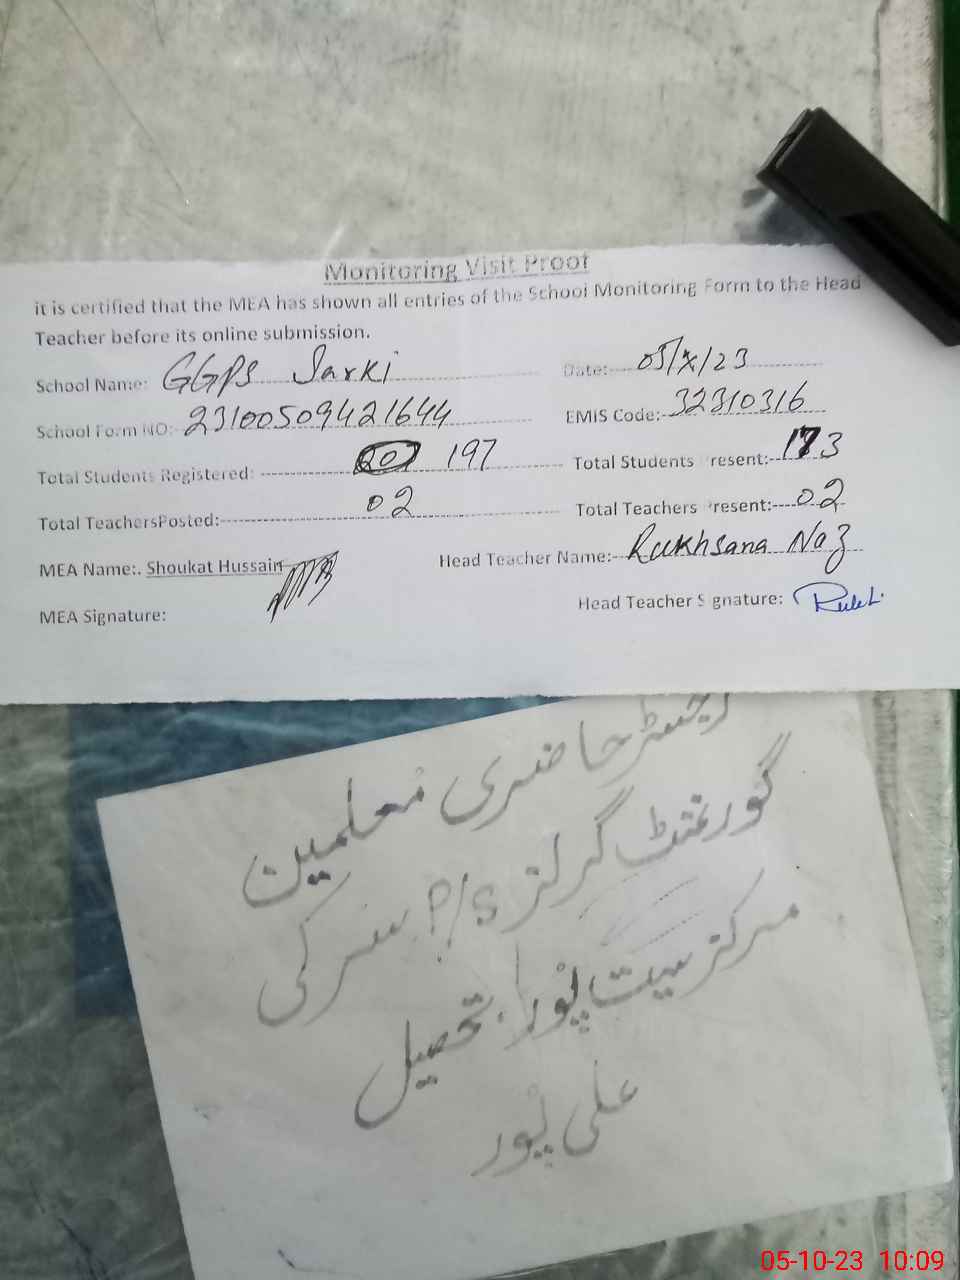 Monitoring Visit Proof
it is certified that the MEA has shown all entries of the School Monitoring Form to the Head
Teacher before its online submission.
School Name: GGPS Sarki Date: 05/X/23
School Form NO: 23100509421644 EMIS Code: 32310316
Total Students Registered: 197 Total Students Present: 173
Total TeachersPosted: 02 Total Teachers Present: 02
MEA Name:. Shoukat Hussain Head Teacher Name: Rukhsana Naz
MEA Signature: Head Teacher Signature:
رجسٹر حاضری معلمین
گورنمنٹ گرلز P/S سرکی
مرکز سیت پور، تحصیل
علی پور
05-10-23 10:09